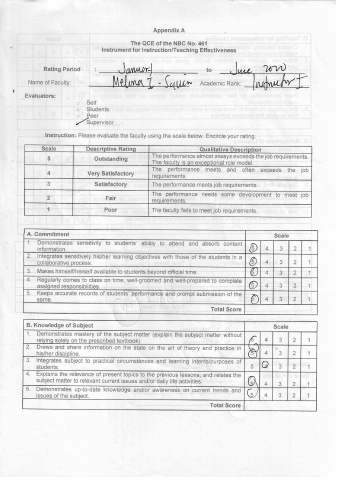 Appendix A
The QCE of the NBC No. 461
Instrument for Instruction/Teaching Effectiveness
Rating Period : January to June 2020
Name of Faculty: Academic Rank: Instructor I
Evaluators:
Self
Students
Peer
Supervisor
Instruction: Please evaluate the faculty using the scale below. Encircle your rating.
Scale Descriptive Rating Qualitative Description
5 Outstanding The performance almost always exceeds the job requirements.
The faculty is an exceptional role model
4 Very Satisfactory The performance meets and often exceeds the job
requirements.
3 Satisfactory The performance meets job requirements.
2 Fair The performance needs some development to meet job
requirements.
1 Poor The faculty fails to meet job requirements.
A. Commitment Scale
1. Demonstrates sensitivity to students' ability to attend and absorb content
information. 5 4 3 2 1
2. Integrates sensitively his/her learning objectives with those of the students in a
collaborative process. 5 4 3 2 1
3. Makes himself/herself available to students beyond official time. 5 4 3 2 1
4. Regularly comes to class on time, well-groomed and well-prepared to complete
assigned responsibilities. 5 4 3 2 1
5. Keeps accurate records of students' performance and prompt submission of the
same. 5 4 3 2 1
Total Score
B. Knowledge of Subject Scale
1. Demonstrates mastery of the subject matter (explain the subject matter without
relying solely on the prescribed textbook). 5 4 3 2 1
2. Draws and share information on the state on the art of theory and practice in
his/her discipline. 5 4 3 2 1
3. Integrates subject to practical circumstances and learning intents/purposes of
students. 5 4 3 2 1
4. Explains the relevance of present topics to the previous lessons, and relates the
subject matter to relevant current issues and/or daily life activities. 5 4 3 2 1
5. Demonstrates up-to-date knowledge and/or awareness on current trends and
issues of the subject. 5 4 3 2 1
Total Score